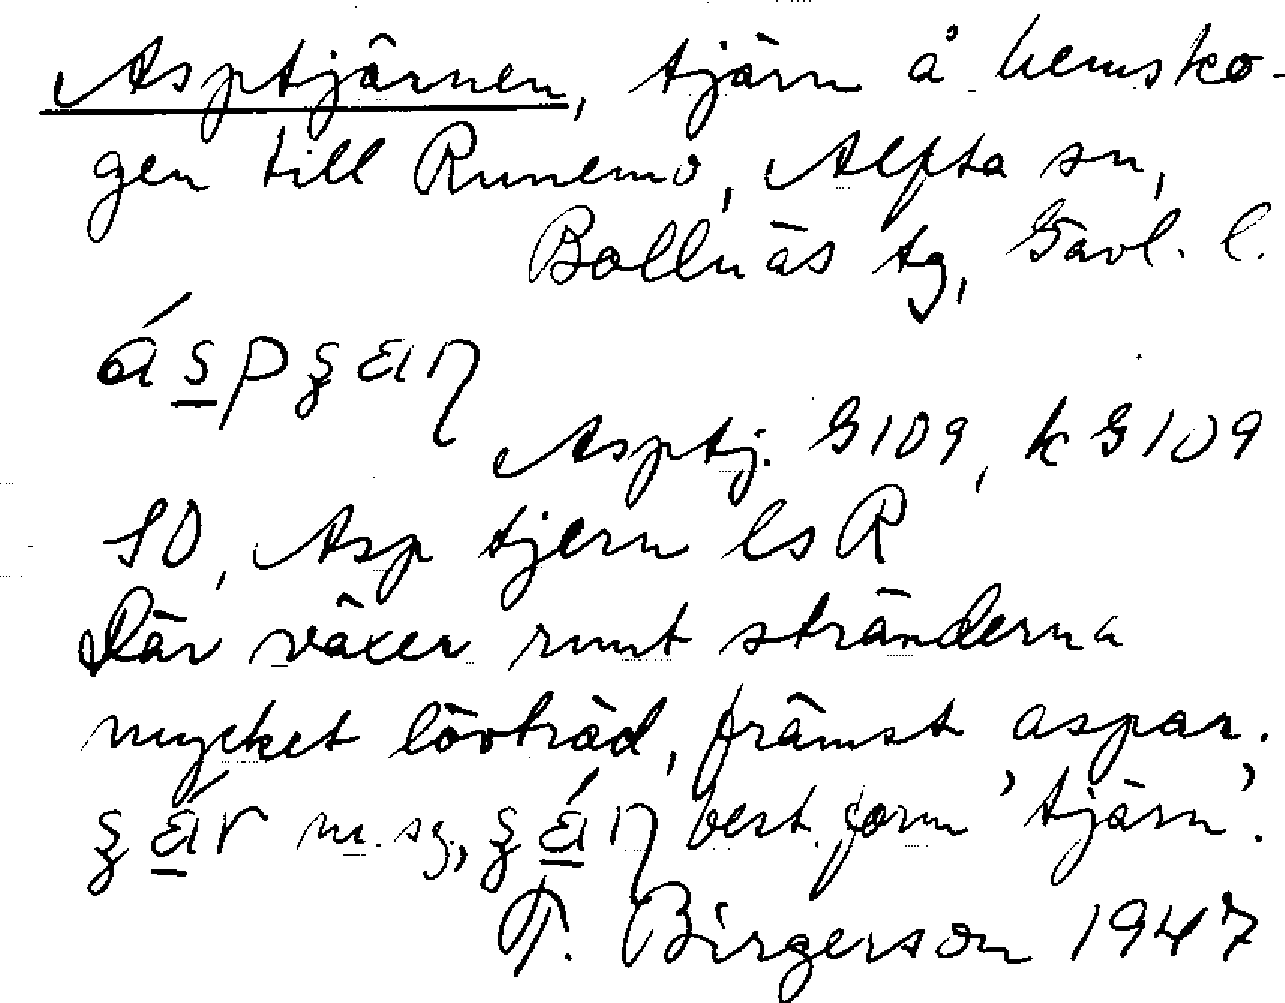 Asptjärnen, tjärn å hemsko-
gen till Runemo, Alfta sn,
Bollnäs tg, Gävl. l.
Asptj. G109, kG109
SO, Asp tjern lsR
Där växer runt stränderna
mycket lövträd, främst aspar.
m. sg, best. form 'tjärn'.
T. Birgerson 1947